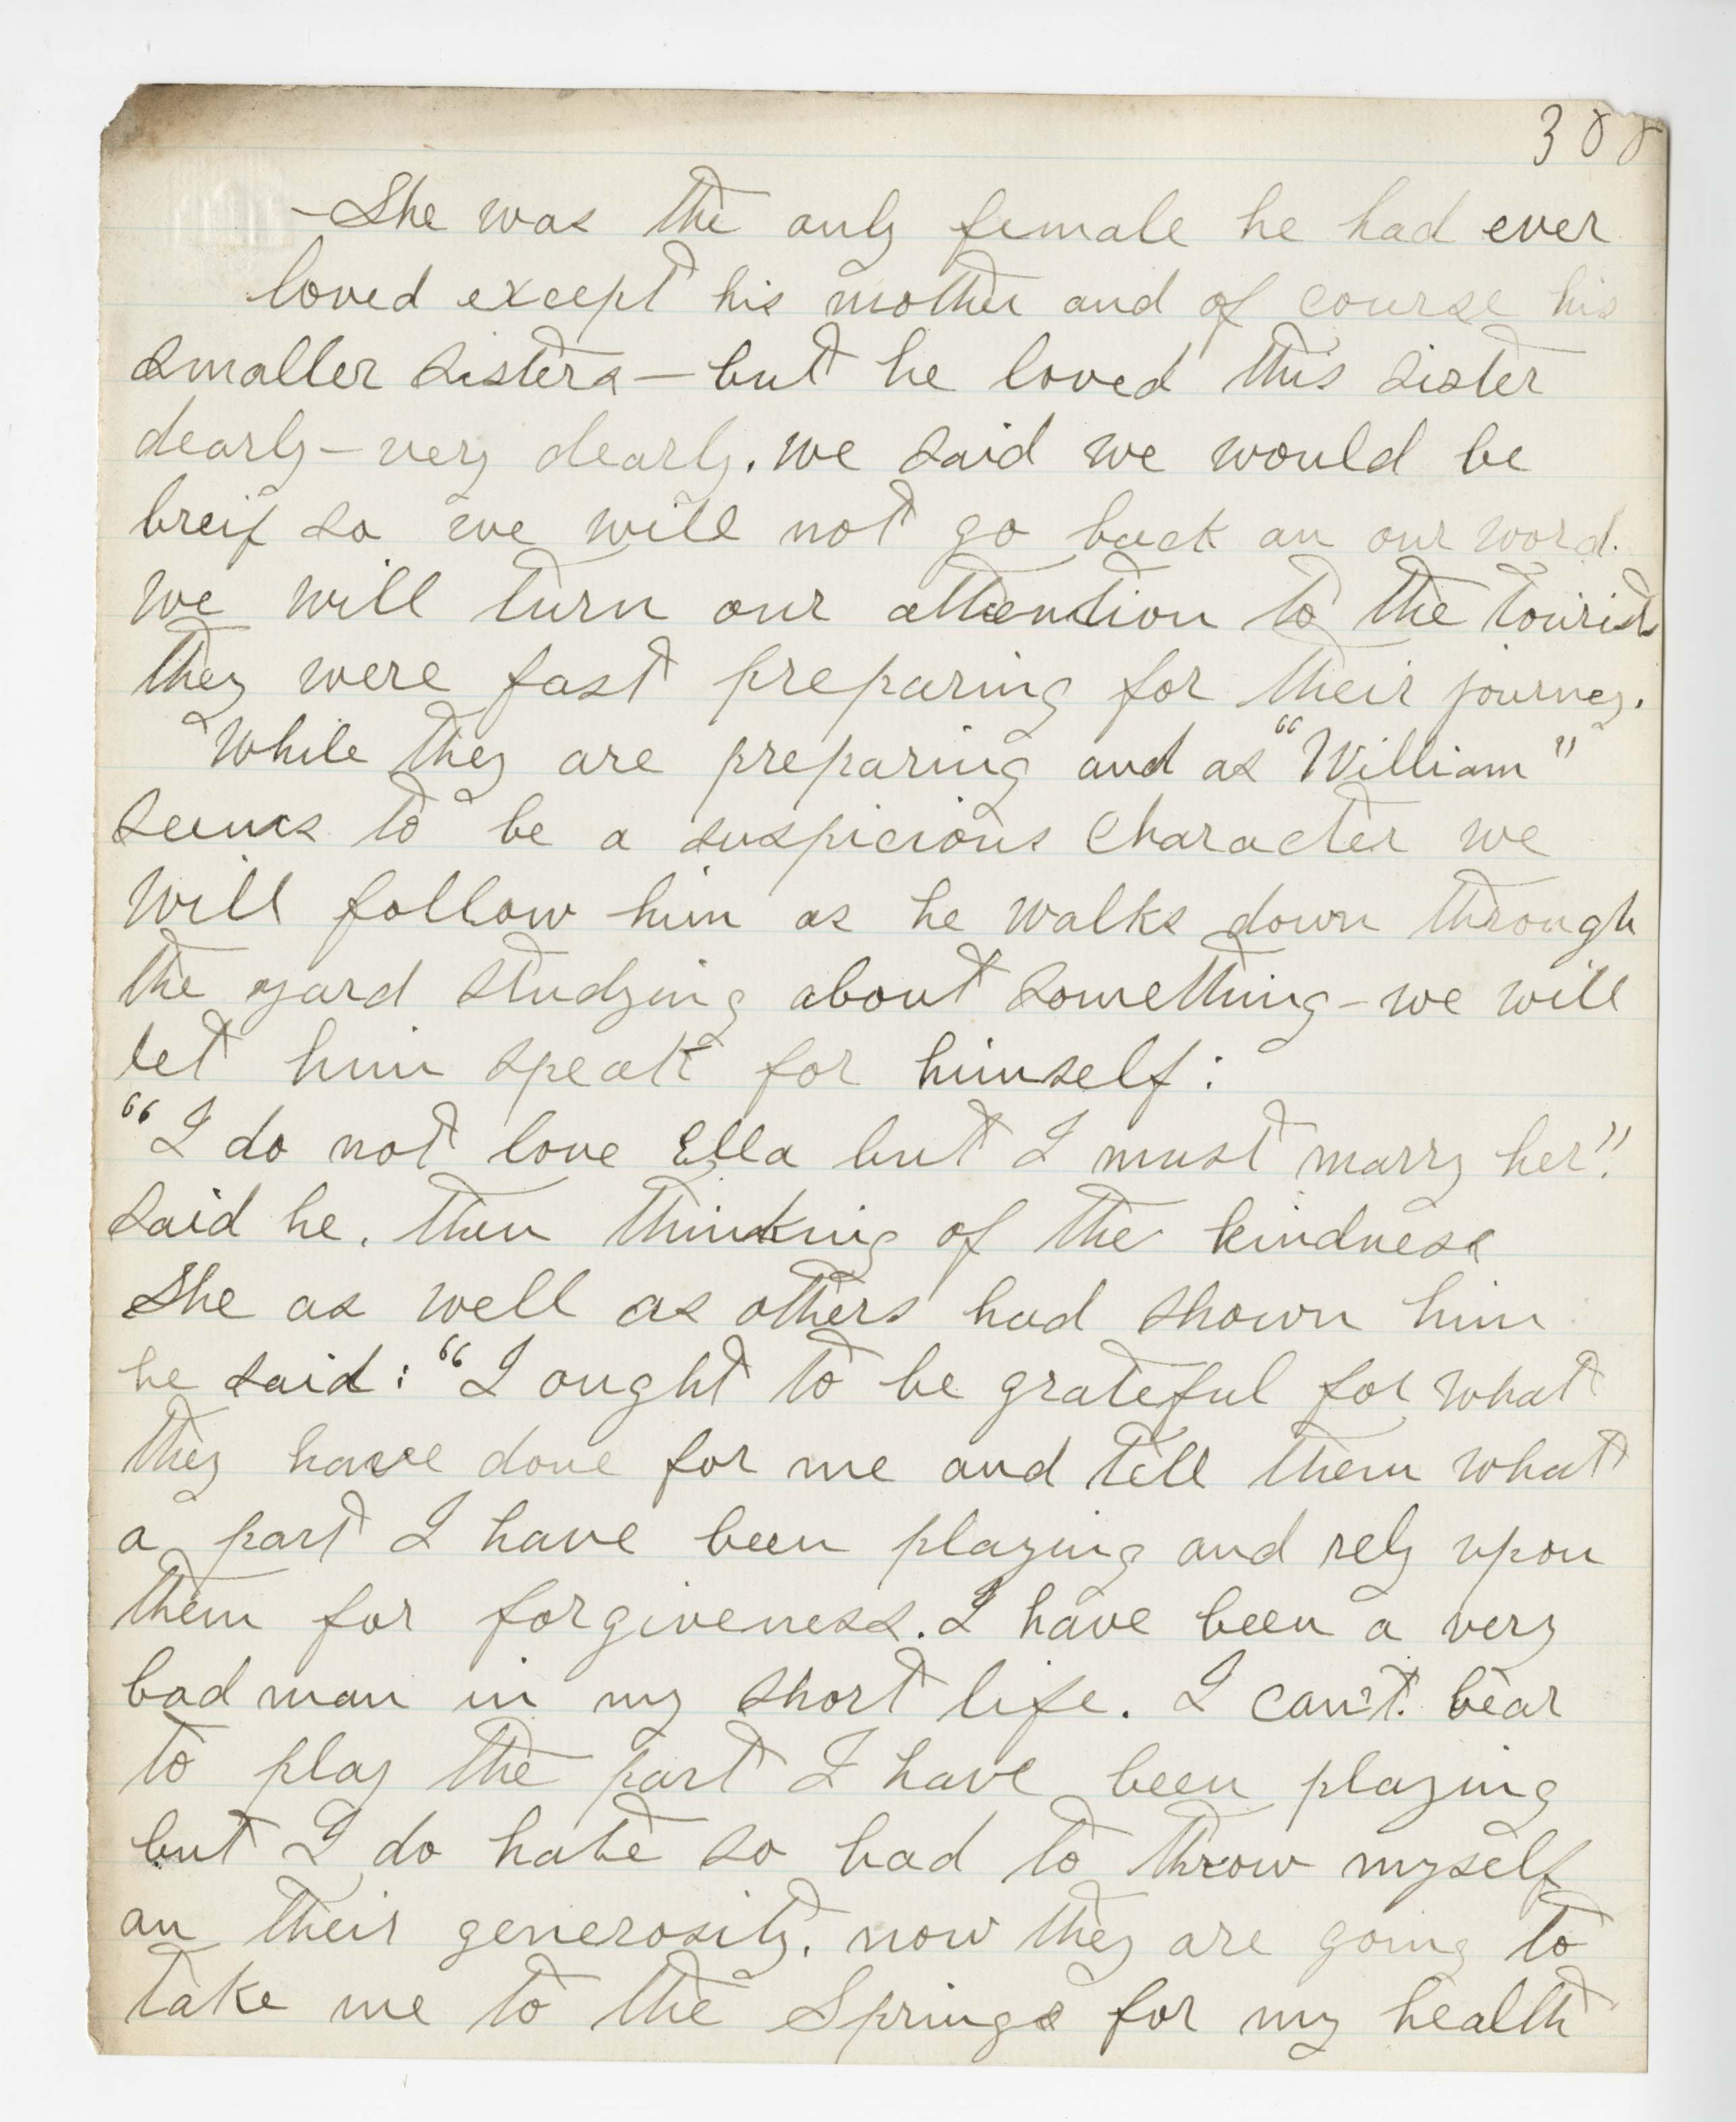 388
- She was the only female he had ever
loved except his mother and of course his
smaller sisters - but he loved this sister
dearly - very dearly. we said we would be
breif so we will not go back on our word.
We will turn our attention to the tourists
they were fast preparing for their journey.
While they are preparing and as "William"
seems to be a suspicious character we
will follow him as he walks down through
the yard studying about something - we will
let him speak for himself:
"I do not love Ella but I must marry her".
said he. then thinking of the kindness
she as well as others had shown him
he said: "I ought to be grateful for what
they have done for me and tell them what
a part I have been playing and rely upon
them for forgiveness. I have been a very
bad man in my short life. I can't bear
to play the part I have been playing
but I do hate so bad to throw myself
on their generosity. now they are going to
take me to the Springs for my health